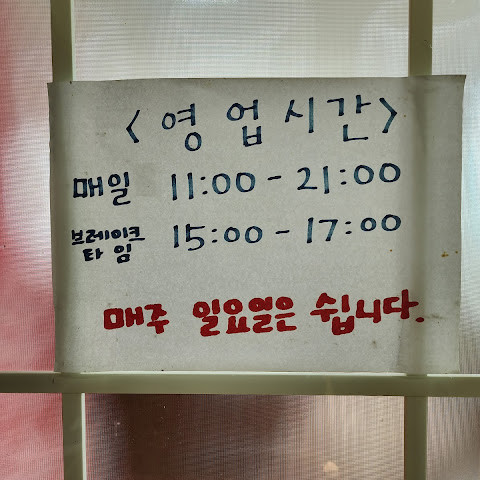 <영업시간>
매일 11:00 - 21:00
브레이크 타임 15:00 - 17:00
매주 일요열은 쉽니다.